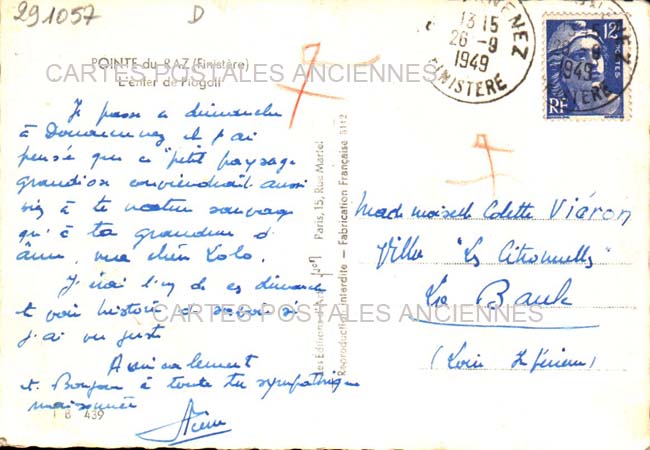 291057
D
POINTE du RAZ (Finistère)
L'enfer de Plogoff
CARTES POSTALES ANCIENNES
Je passe dimanche
à Douarnenez et j'ai
pensé que ce "petit paysage
grandiose conviendrait aussi
bien à ta nature sauvage
qu'à ta grandeur d'
âme, ma chère Lolo.
J'irai l'un de ces dimanche
te voir histoire de savoir si
j'ai vu juste
Amicalement
et Bonjour à toute ta sympathique
maisonnée
439
Les Editions d'Art Paris, 15, Rue Martel
Reproduction Interdite - Fabrication Française 5112
NENEZ
13 15
26 - 9
1949
FINISTÈRE
12F
POSTES
RF
1949
Mademoiselle Colette Viéron
Villa "Les Citronnelles"
La Baule
(Loire Inférieure)
CARTES POSTALES ANCIENNES